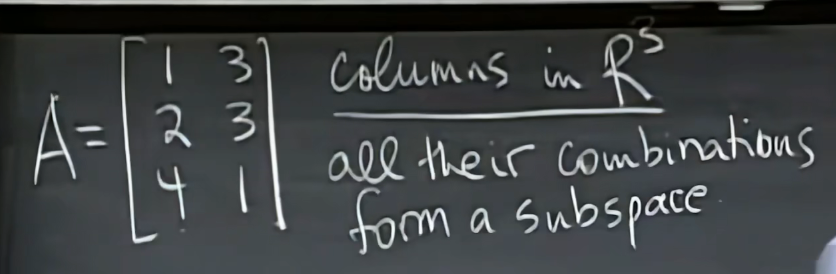 A = [1 3
2 3
4 1]
columns in R³
all their combinations
form a subspace.